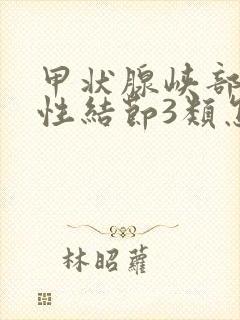 甲状腺峡部
性結節3類
林昭蘿